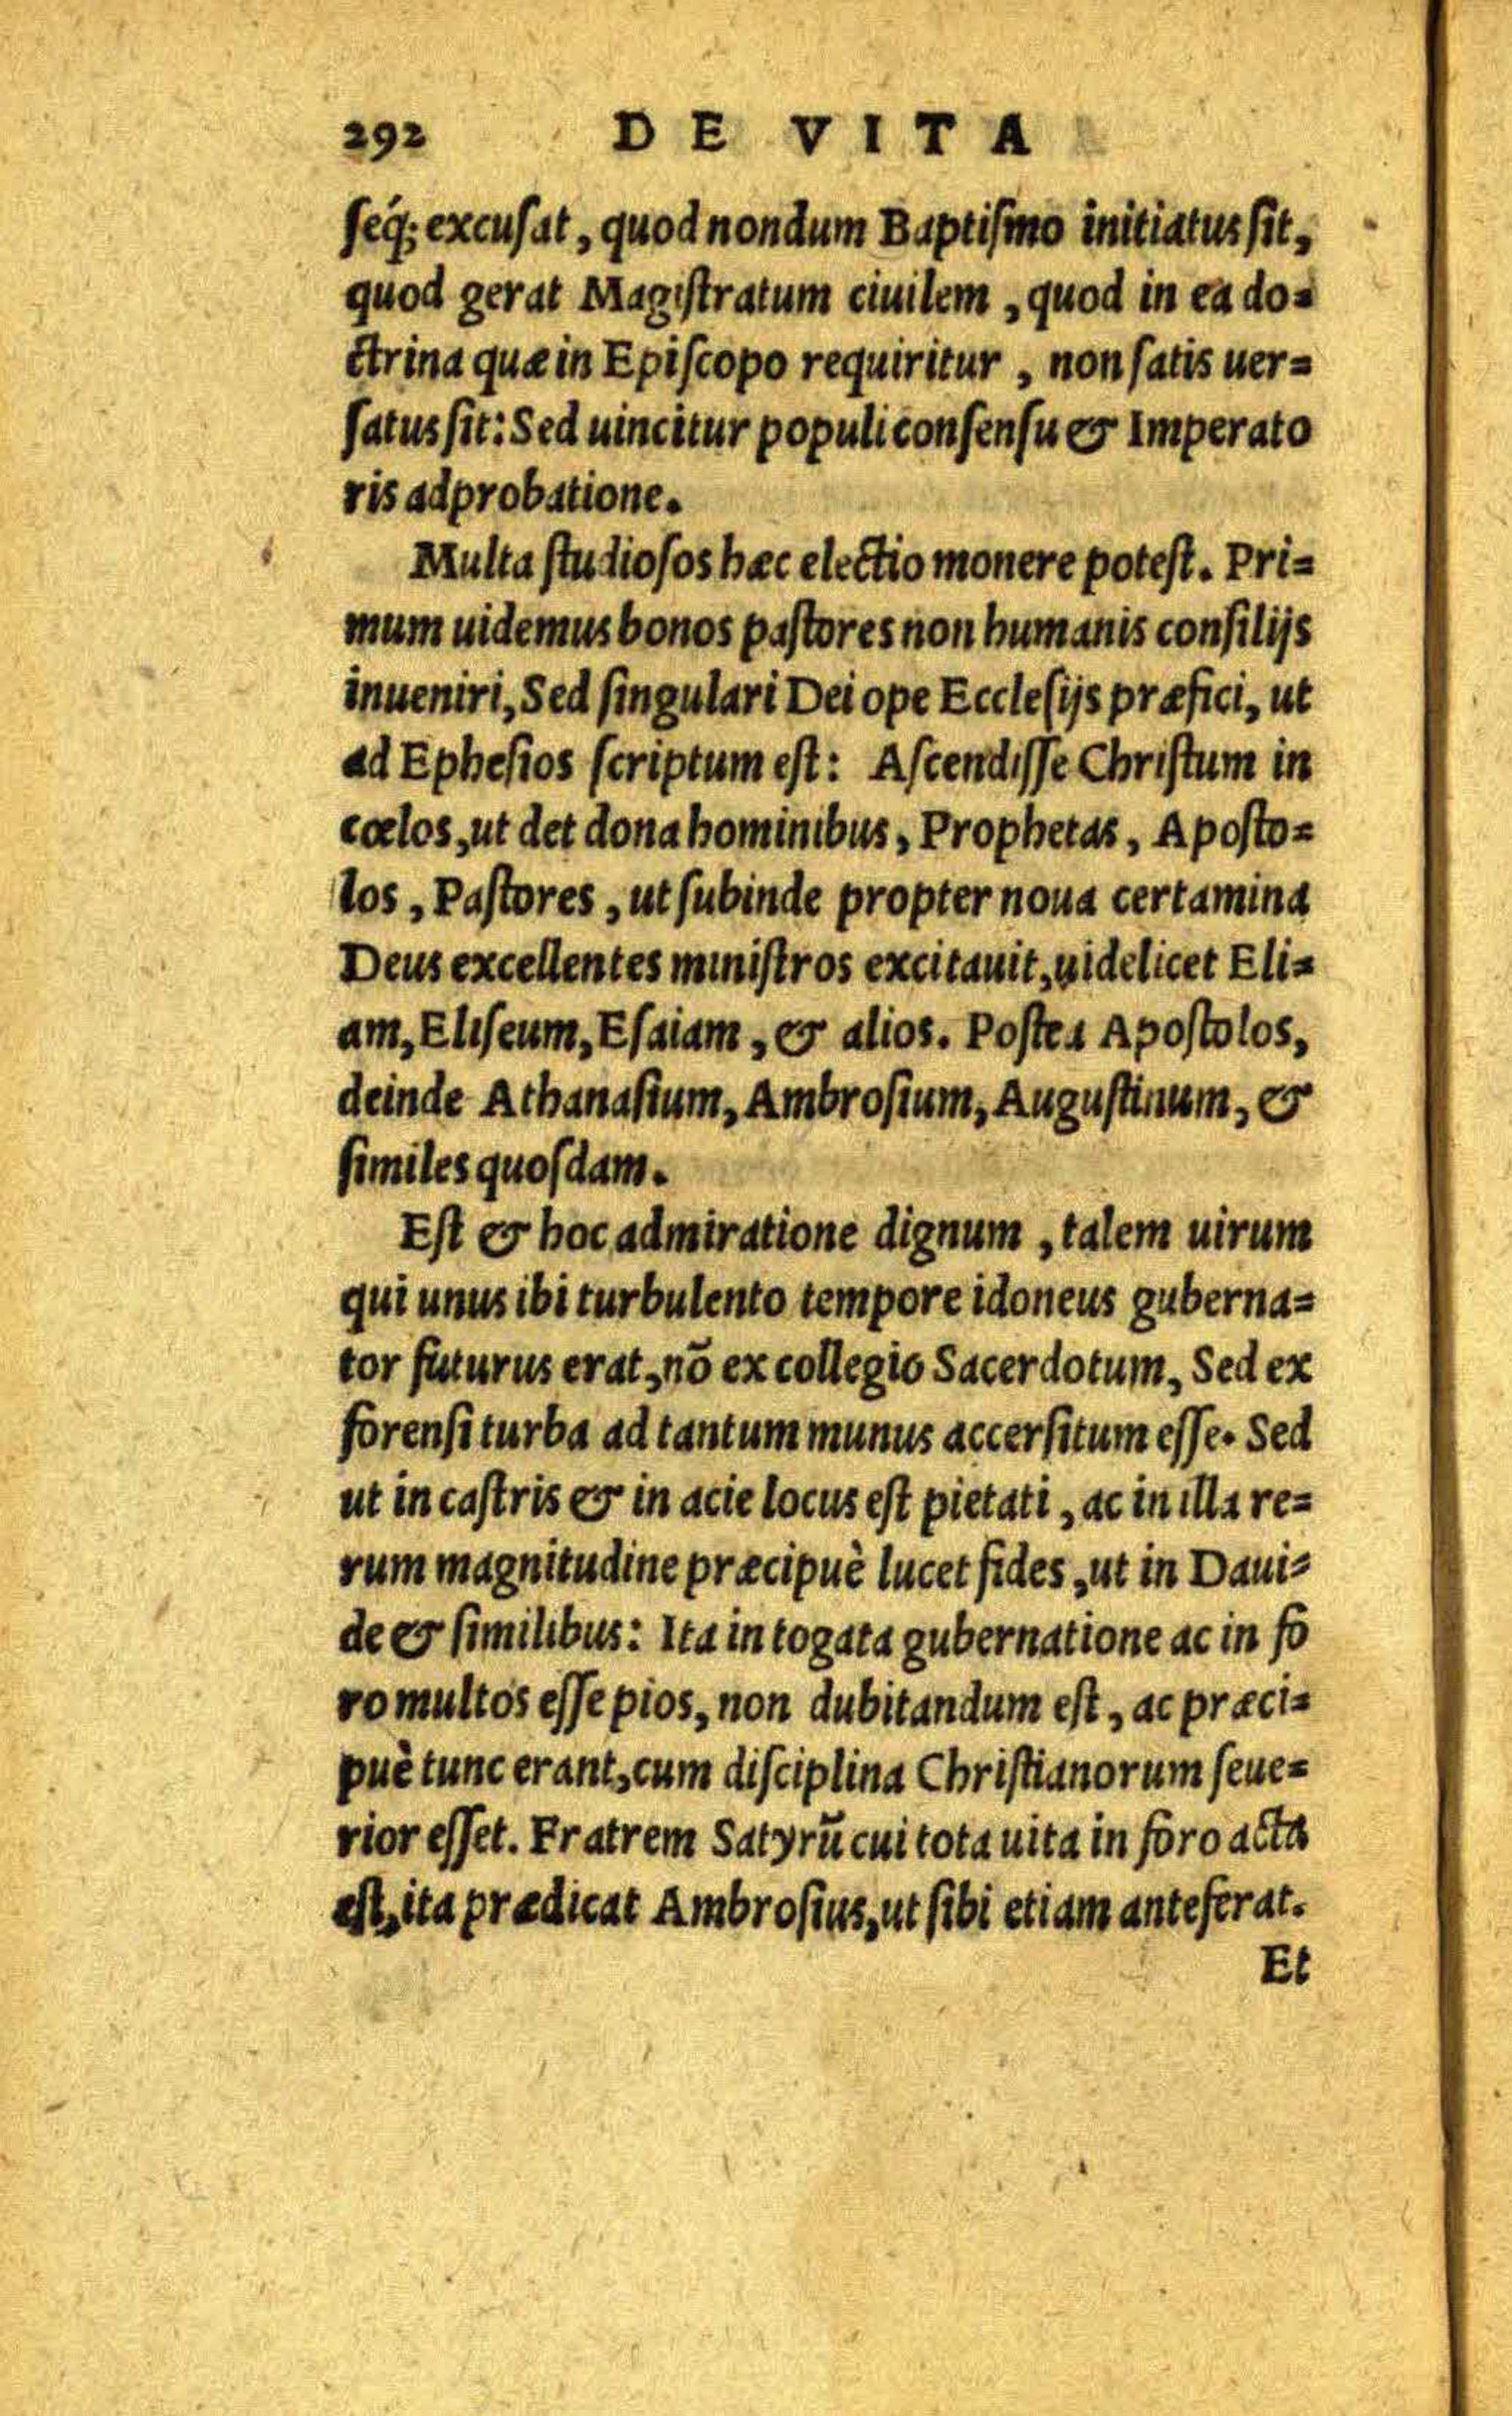 292 DE VITA
ſeq́; excuſat, quod nondum Baptiſmo initiatus ſit,
quod gerat Magiſtratum ciuilem, quod in ea do=
ctrina quæ in Epiſcopo requiritur, non ſatis uer=
ſatus ſit: Sed uincitur populi conſenſu & Imperato
ris adprobatione.
Multa ſtudioſos hæc electio monere poteſt. Pri=
mum uidemus bonos paſtores non humanis conſilijs
inueniri, Sed ſingulari Dei ope Eccleſijs præfici, ut
ad Epheſios ſcriptum eſt: Aſcendiſſe Chriſtum in
cœlos, ut det dona hominibus, Prophetas, Apoſto=
los, Paſtores, ut ſubinde propter noua certamina
Deus excellentes miniſtros excitauit, uidelicet Eli=
am, Eliſeum, Eſaiam, & alios. Poſtea Apoſtolos,
deinde Athanaſium, Ambroſium, Auguſtinum, &
ſimiles quoſdam.
Eſt & hoc admiratione dignum, talem uirum
qui unus ibi turbulento tempore idoneus guberna=
tor futurus erat, nō ex collegio Sacerdotum, Sed ex
forenſi turba ad tantum munus accerſitum eſſe. Sed
ut in caſtris & in acie locus eſt pietati, ac in illa re=
rum magnitudine præcipuè lucet fides, ut in Daui=
de & ſimilibus: Ita in togata gubernatione ac in fo
ro multos eſſe pios, non dubitandum eſt, ac præci=
puè tunc erant, cum diſciplina Chriſtianorum ſeue=
rior eſſet. Fratrem Satyrū cui tota uita in foro acta
eſt, ita prædicat Ambroſius, ut ſibi etiam anteferat.
Et